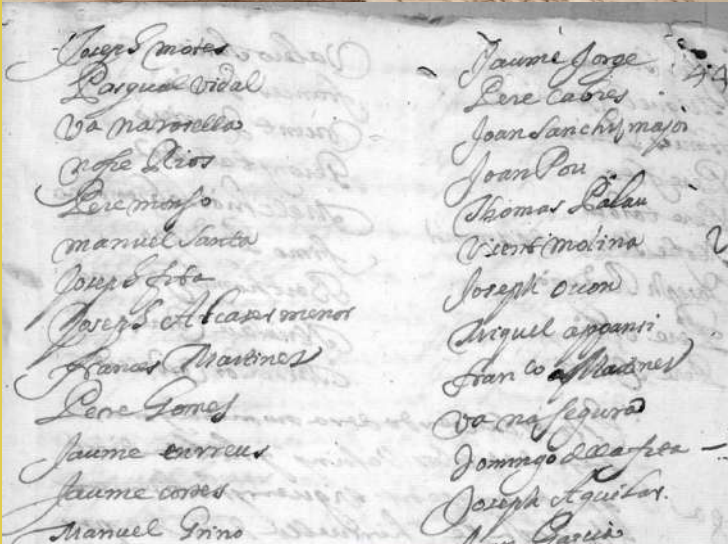 Joseph mores
Pasqual Vidal
Va na rosella
nofre Rios
Pere monso
manuel Santa
Joseph fita
Joseph Alcaser menor
frances Martines
Pere Gomes
Jaume
Jaume cortes
Manuel Grino
Jaume Jorge
Pere Cabres
Joan Sanchis major
Joan Pou
Thomas Palau
Vicent molina
Joseph
Miquel apparisi
fran co Martines
Va na Segura
Domingo de la fita
Joseph Aguilar.
Garcia